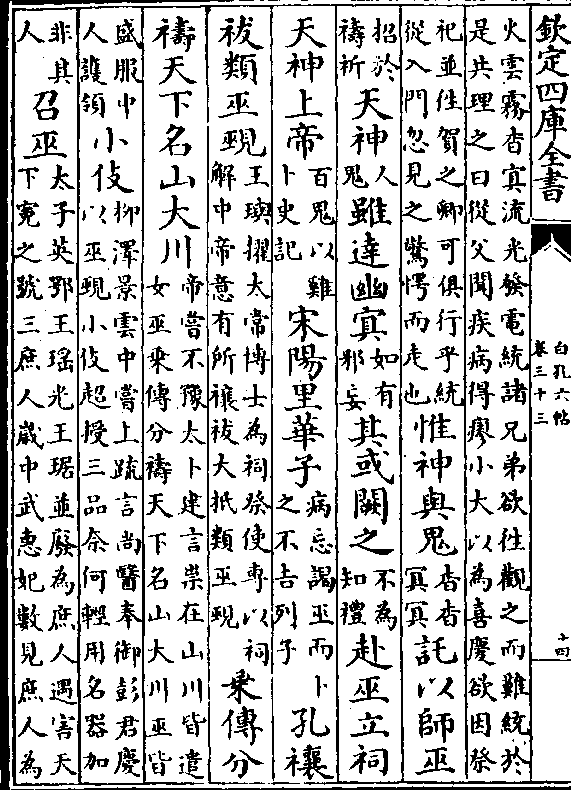 欽定四庫全書
白孔六帖
卷三十三
十四
火雲霧杳冥流光發電統諸兄弟欲往觀之而難統於
是共理之曰從父聞疾病得瘳小大以為喜慶欲因祭
祀並往賀之卿可俱行乎統
從入門忽見之驚愕而走也
惟神與鬼
杳杳
冥冥
託以師巫
招於
禱祈
天神
人
鬼
雖達幽冥
如有
邪妄
其或闕之
不為
知禮
赴巫立祠
天神上帝
百鬼以雞
卜史記
宋陽里華子
病忘謁巫而卜
之不吉列子
孔禳
祓類巫覡
王璵擢太常博士為祠祭使專以祠
解中帝意有所禳祓大抵類巫覡
乗傳分
禱天下名山大川
帝嘗不豫太卜建言祟在山川皆遣
女巫乗傳分禱天下名山大川巫皆
盛服中
人護領
小伎
柳澤景雲中嘗上疏言尚醫奉御彭君慶
以巫覡小伎超授三品奈何輕用名器加
非其
人
召巫
太子英鄂王瑶光王琚並廢為庶人遇害天
下寃之號三庶人歲中武惠妃數見庶人為